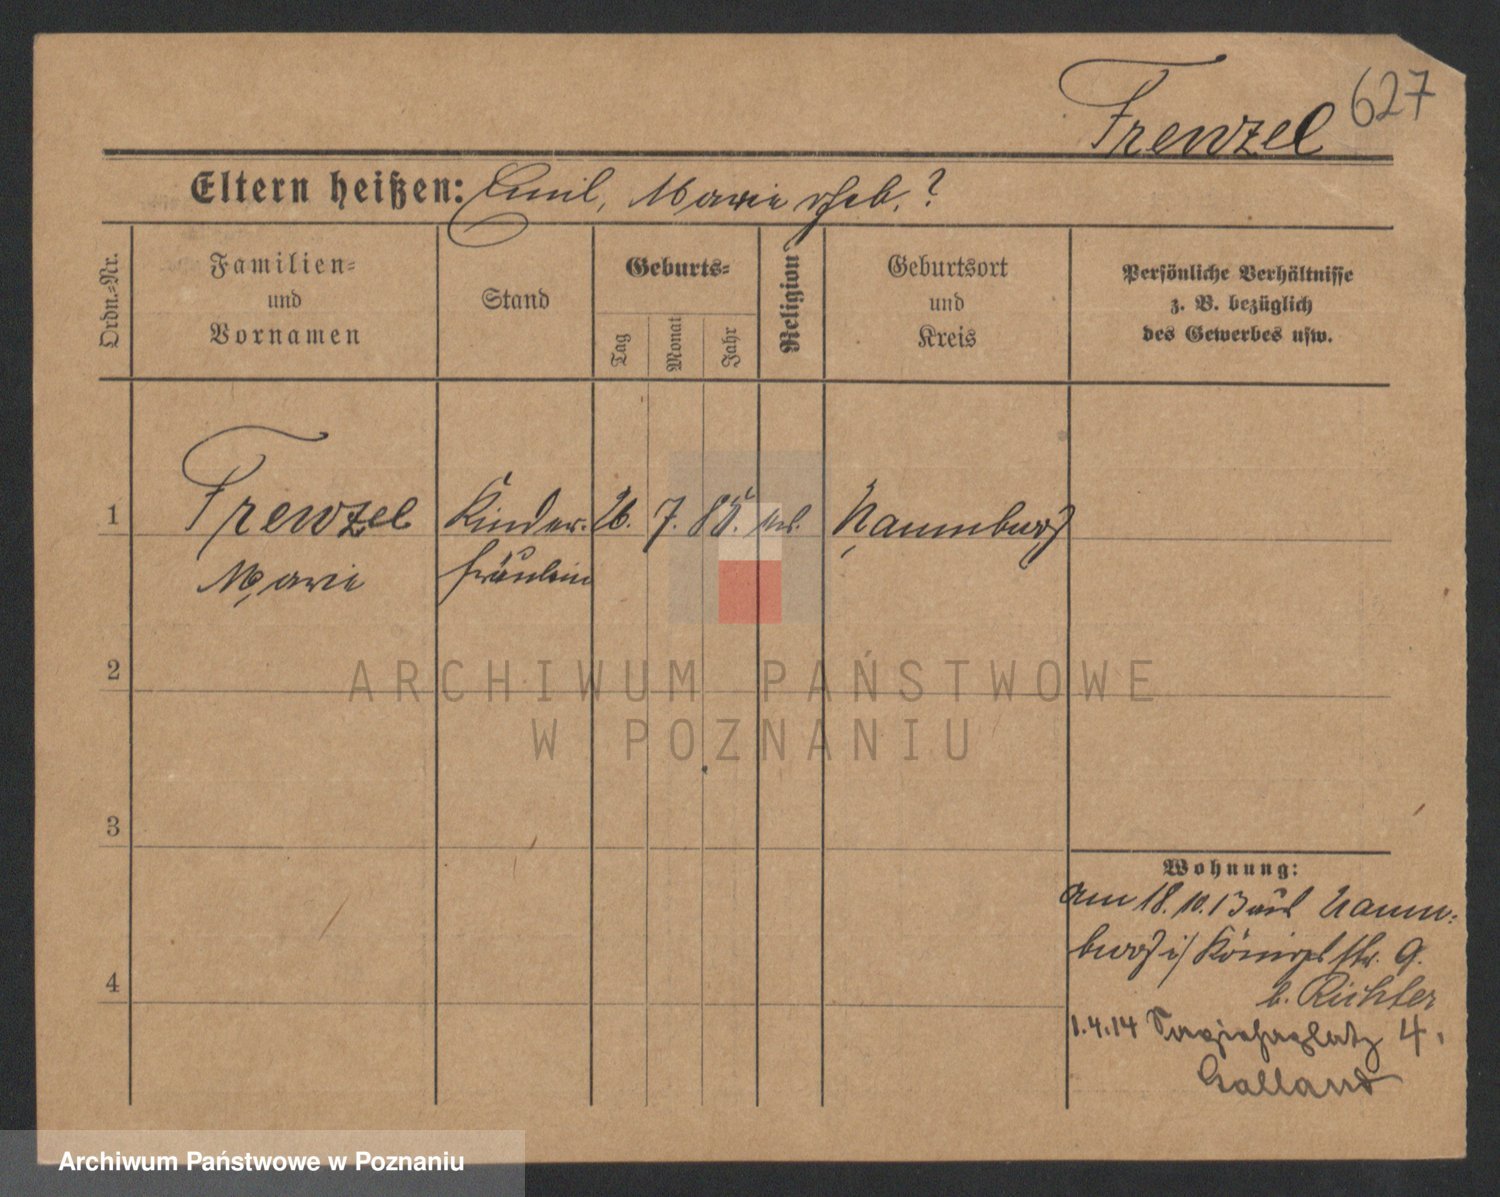 Frenzel 627
Eltern heißen: Emil, Marie geb. ?
Ordn.=Nr.
Familien=
und
Vornamen
Stand
Geburts=
Tag
Monat
Jahr
Religion
Geburtsort
und
Kreis
Persönliche Verhältnisse
z. B. bezüglich
des Gewerbes usw.
1 Frenzel Kinder- 26. 7. 85. Naumburg
Marie fräulein
2
3
4
Wohnung:
am 18.10.13 aus Naum=
burg i/ Königstr. 9.
b. Richter
1.4.14 4.
Galland
ARCHIWUM PAŃSTWOWE
W POZNANIU
Archiwum Państwowe w Poznaniu